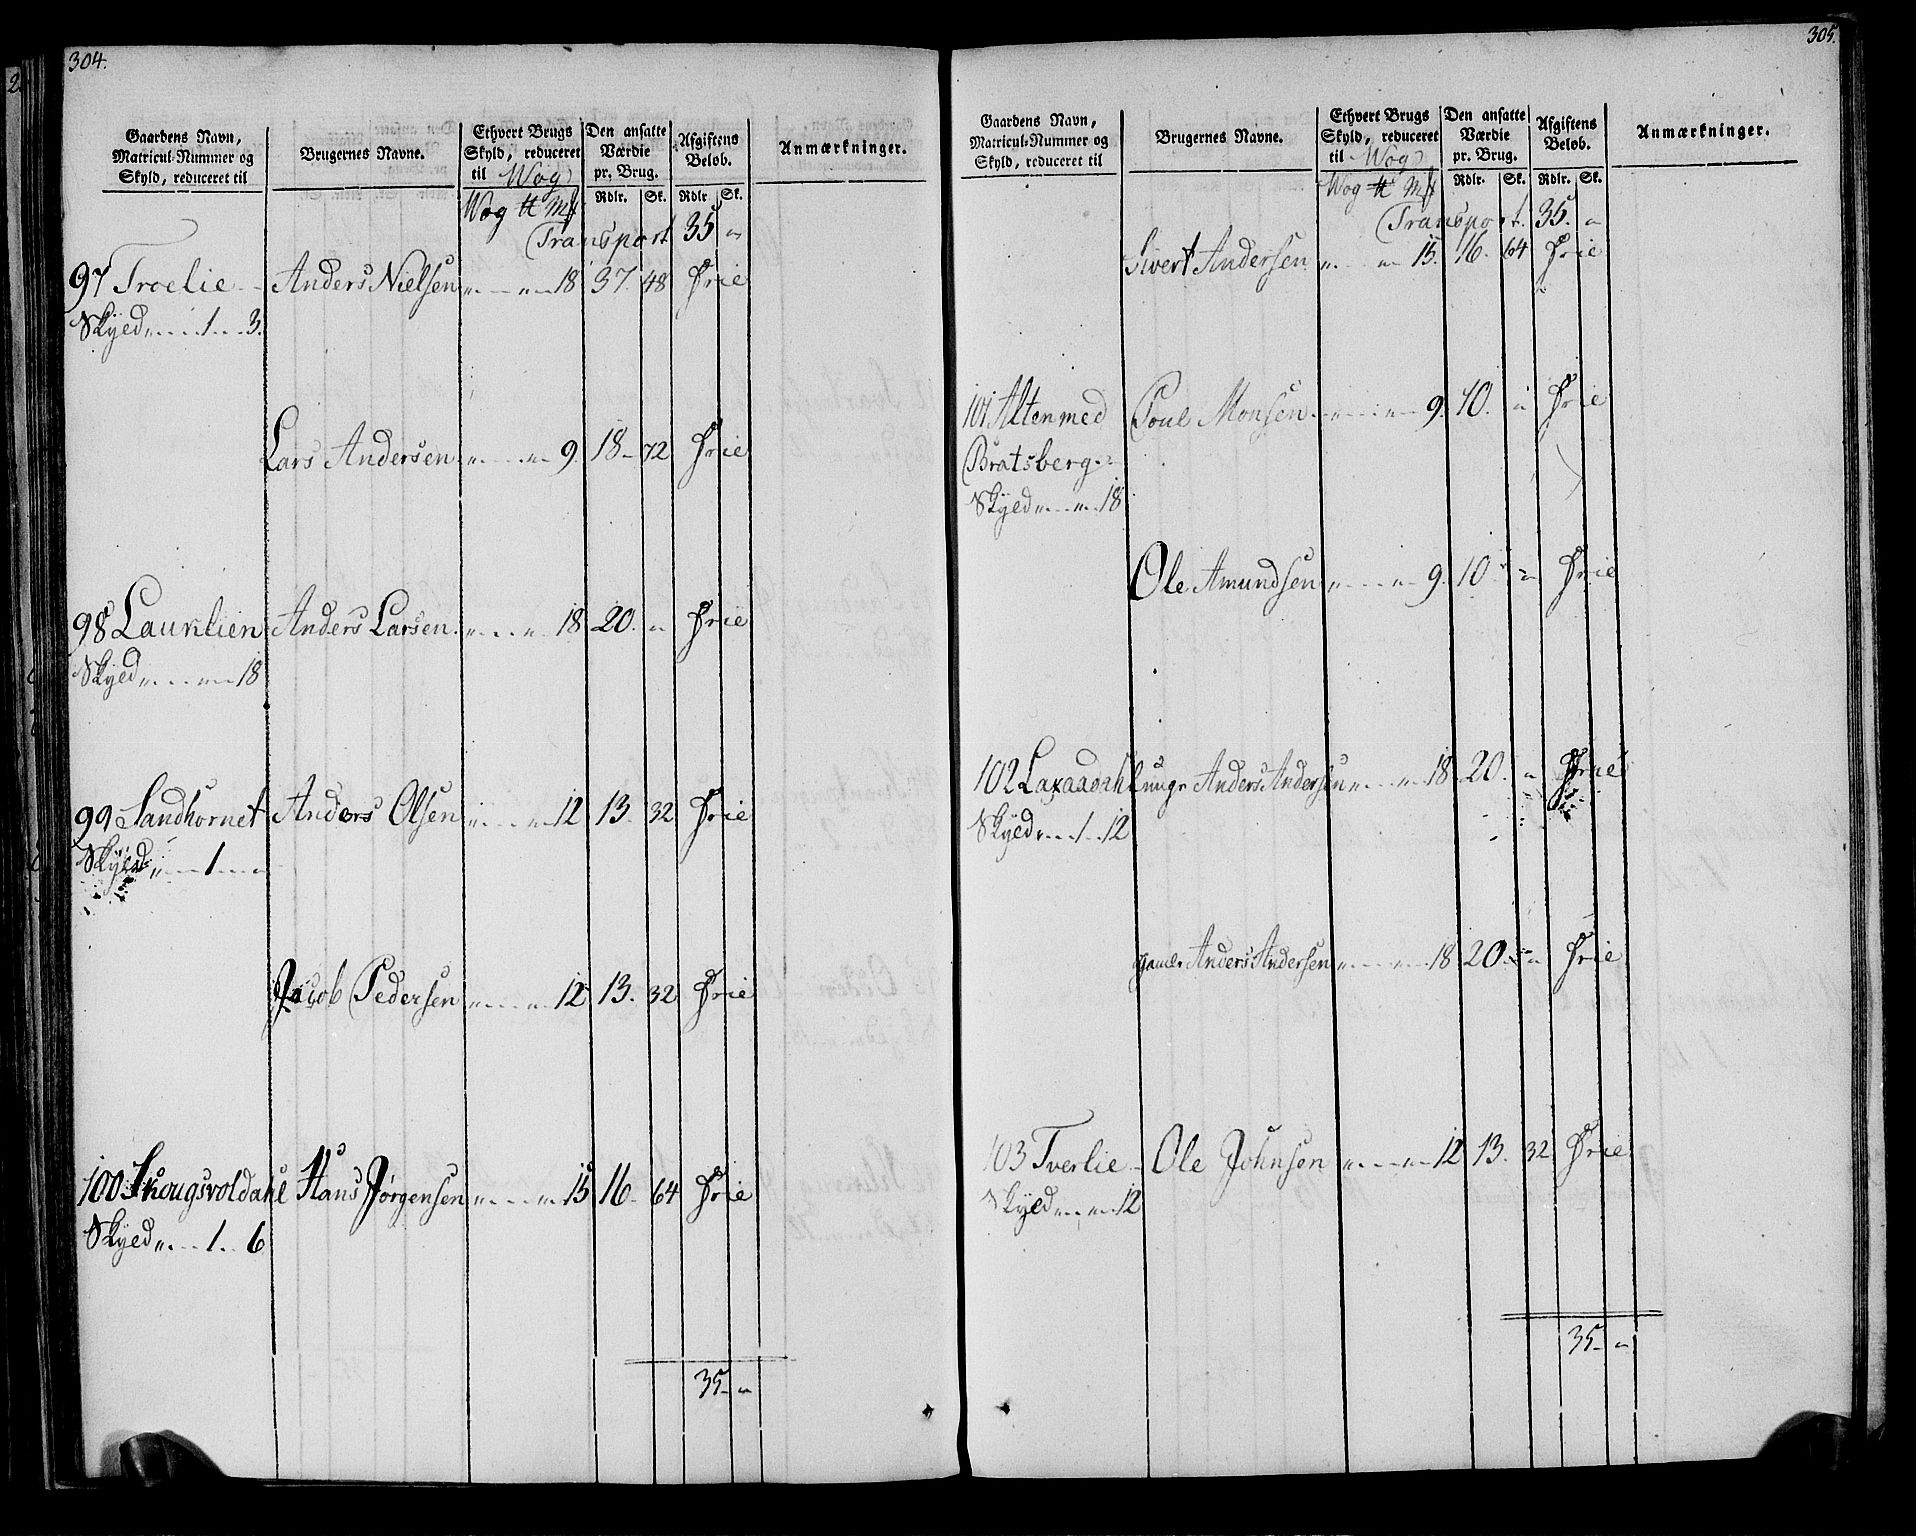 304.
Gaardens Navn,
Matricul-Nummer og
Skyld, reduceret til
Brugernes Navne.
Ethvert Brugs
Skyld, reduceret
til Wog
Wog ℔ Mk
Den ansatte
Værdie
pr. Brug.
Rdlr. Sk.
Afgiftens
Beløb.
Rdlr Sk.
Anmærkninger.
Transport 35 "
97 Troelie Anders Nielsen " " 18 37. 48 Frie
Skyed " 1 " 3.
Lars Andersen " " 9. 18 - 72 Frie
98 Lauklien Anders Larsen " " 18 20. " Frie
Skyed " " 18
99 Sandhornet Anders Olsen " " 12 13. 32 Frie
Skyed " 1 "
Jacob Pedersen " " 12 13. 32 Frie
100 Skougsvoldahl Hans Jørgensen " " 15 16. 64 Frie
Skyed " 1 " 6
35 - "
305.
Gaardens Navn,
Matricul-Nummer og
Skyld, reduceret til
Brugernes Navne.
Ethvert Brugs
Skyld, reduceret
til Wog
Wog ℔ Mk
Den ansatte
Værdie
pr. Brug.
Rdlr. Sk.
Afgiftens
Beløb.
Rdlr. Sk.
Anmærkninger.
Transport. 35. "
Sivert Andersen " " 15. 16. 64 Frie
101 Alten med Poul Monsen " " 9. 10. " Frie
Bratsberg
Skyed " " 18
Ole Amundsen " " 9. 10. " Frie
102 Laxaadahl unge Anders Andersen " " 18 20. " Frie
Skyed " 1 " 12
gamle Anders Andersen " " 18 20. " Frie
103 Tverlie Ole Johnsen " " 12 13. 32 Frie
Skyed " " 12
35 - "